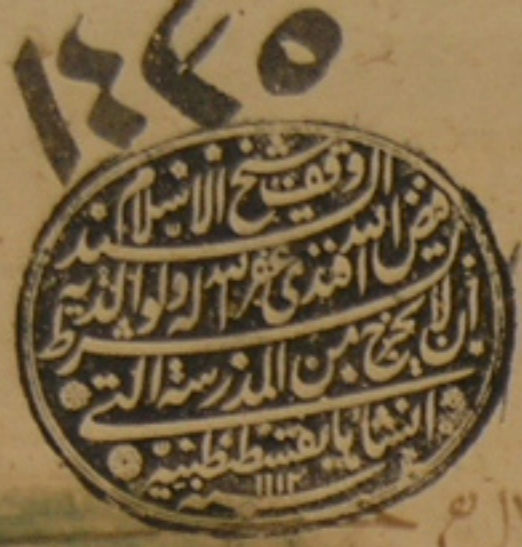 ١٤٢٥
وقف شيخ الاسلام السيد
فيض الله افندى غفر الله له ولوالديه
بشرط أن لا يخرج من المدرسة التى
انشاها بقسطنطنية
سنة ١١١٢